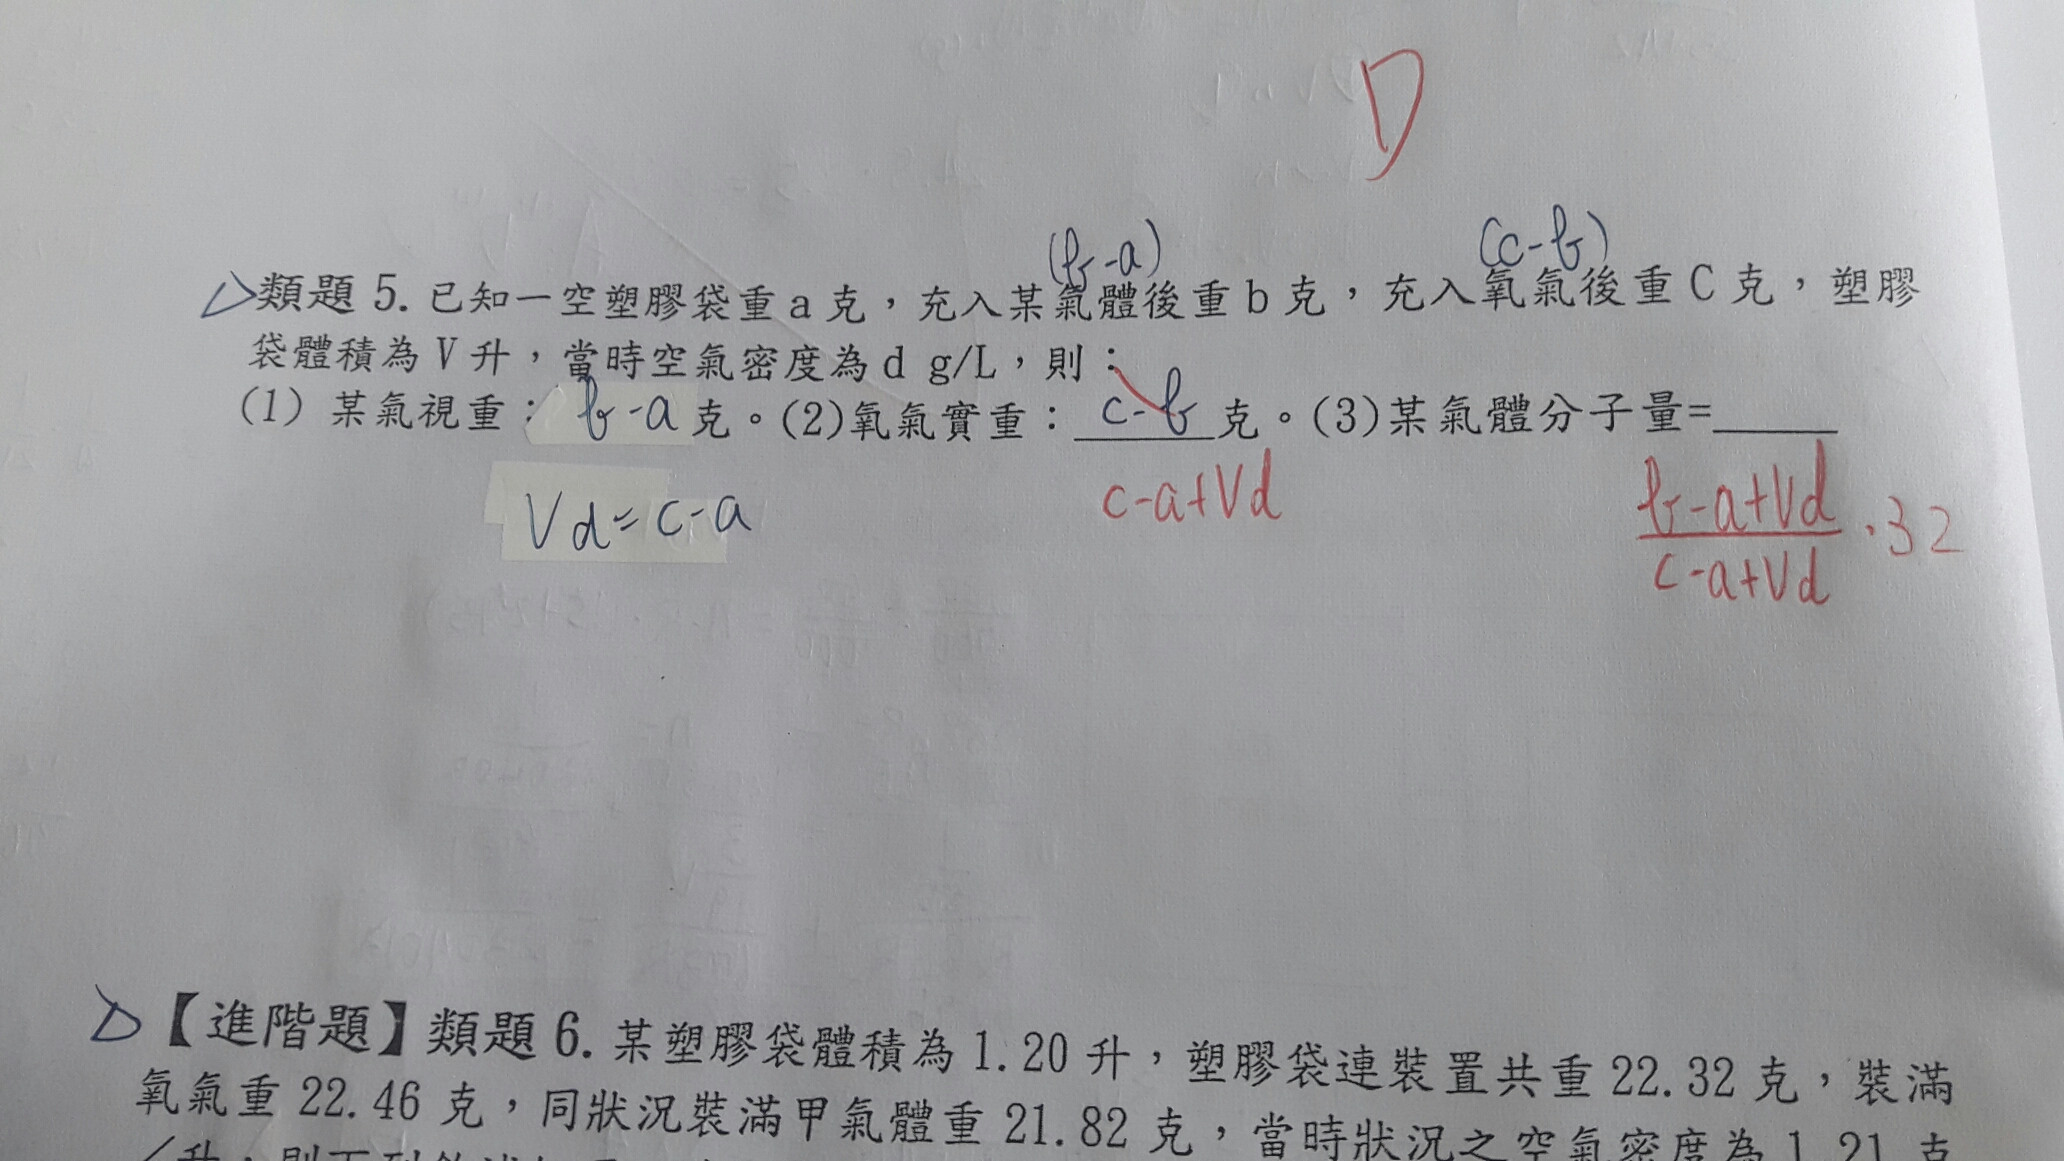 D
(b-a) (c-b)
類題 5. 已知一空塑膠袋重 a 克，充入某氣體後重 b 克，充入氧氣後重 C 克，塑膠
袋體積為 V 升，當時空氣密度為 d g/L，則：
(1) 某氣視重： b-a 克。(2)氧氣實重： c-b 克。(3)某氣體分子量=_____
Vd=c-a c-a+Vd b-a+Vd/c-a+Vd ·32
【進階題】類題 6. 某塑膠袋體積為 1.20 升，塑膠袋連裝置共重 22.32 克，裝滿
氧氣重 22.46 克，同狀況裝滿甲氣體重 21.82 克，當時狀況之空氣密度為 1.21 克
／升，則下列敘述